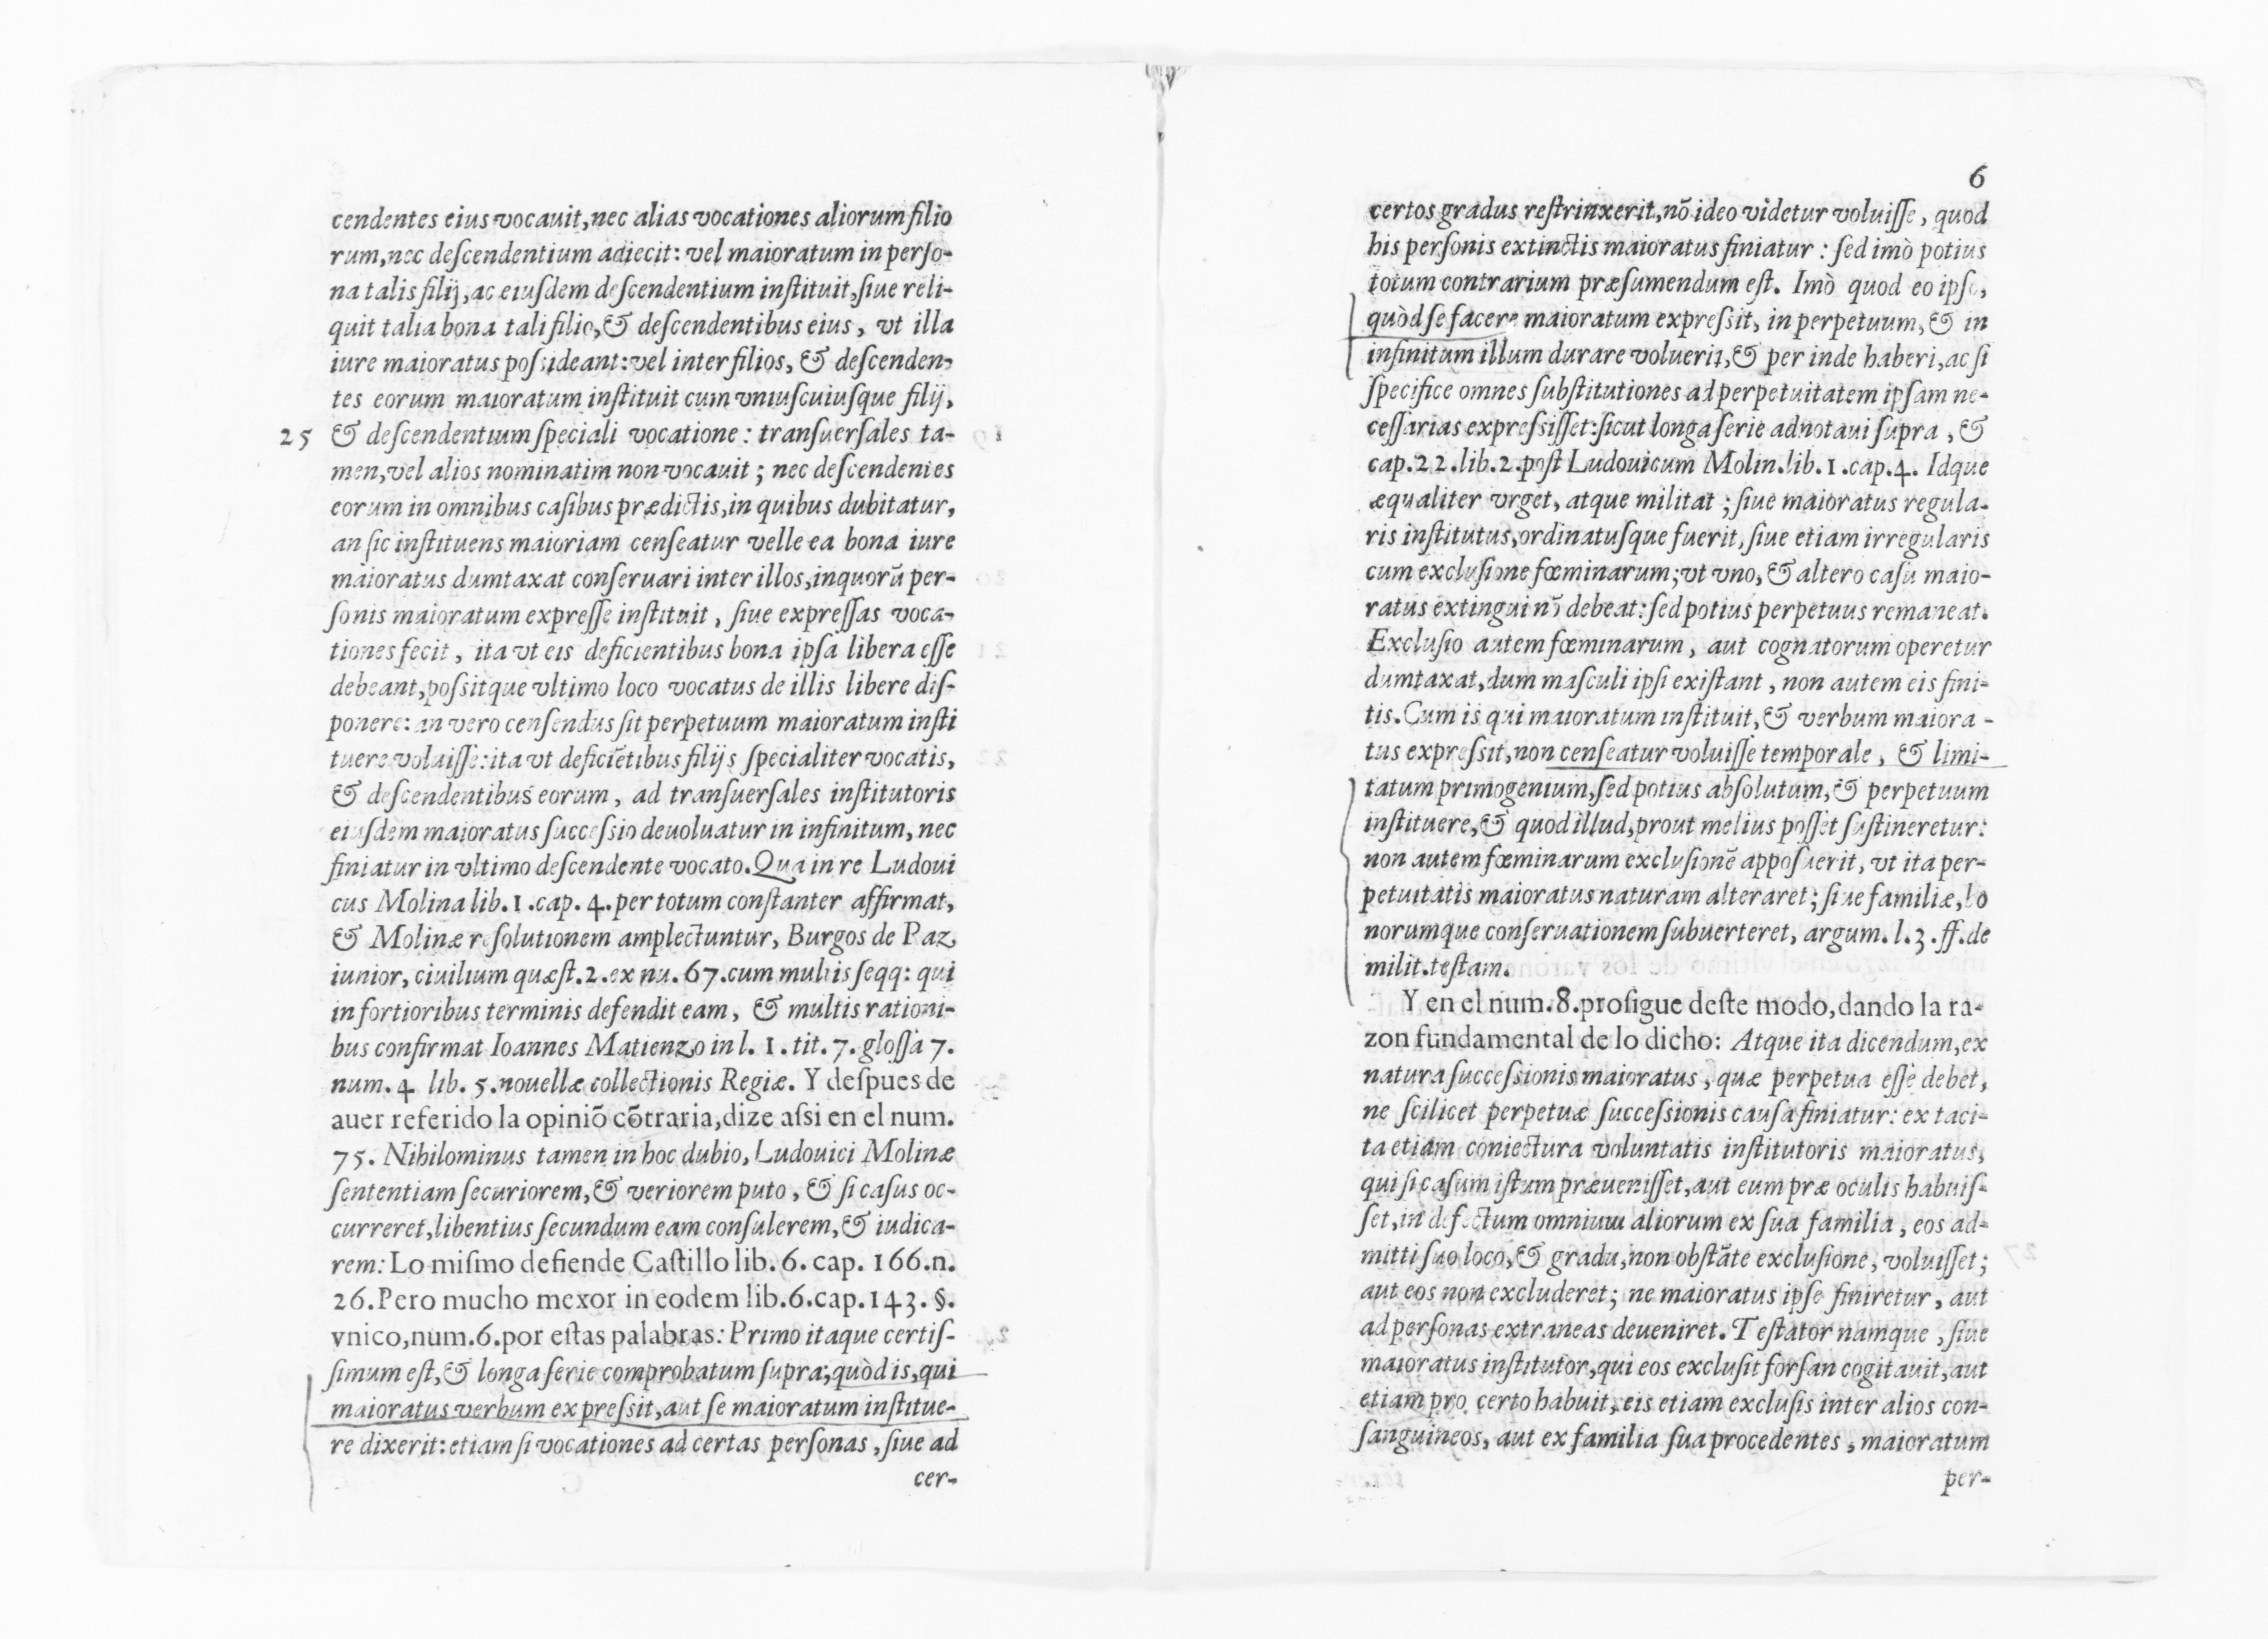 cendentes eius vocauit, nec alias vocationes aliorum filio
rum, nec deſcendentium adiecit: vel maioratum in perſo-
na talis filij, ac eiuſdem deſcendentium inſtituit, ſiue reli-
quit talia bona tali filio, & deſcendentibus eius, vt illa
iure maioratus poſsideant: vel inter filios, & deſcenden-
tes eorum maioratum inſtituit cum vniuſcuiuſque filij,
25 & deſcendentium ſpeciali vocatione: tranſuerſales ta-
men, vel alios nominatim non vocauit; nec deſcendentes
eorum in omnibus caſibus prædictis, in quibus dubitatur,
an ſic inſtituens maioriam cenſeatur velle ea bona iure
maioratus dumtaxat conſeruari inter illos, inquorũ per-
ſonis maioratum expreſſe inſtituit, ſiue expreſſas voca-
tiones fecit, ita vt eis deficientibus bona ipſa libera eſſe
debeant, poſsitque vltimo loco vocatus de illis libere diſ-
ponere: an vero cenſendus ſit perpetuum maioratum inſti
tuere voluiſſe: ita vt deficiẽtibus filijs ſpecialiter vocatis,
& deſcendentibus eorum, ad tranſuerſales inſtitutoris
eiuſdem maioratus ſucceſsio deuoluatur in infinitum, nec
finiatur in vltimo deſcendente vocato. Qua in re Ludoui
cus Molina lib. 1. cap. 4. per totum conſtanter affirmat,
& Molinæ reſolutionem amplectuntur, Burgos de Paz
iunior, ciuilium quæſt. 2. ex nu. 67. cum multis ſeqq: qui
in fortioribus terminis defendit eam, & multis rationi-
bus confirmat Ioannes Matienzo in l. 1. tit. 7. gloſſa 7.
num. 4 lib. 5. nouellæ collectionis Regiæ. Y deſpues de
auer referido la opiniõ cõtraria, dize aſsi en el num.
75. Nihilominus tamen in hoc dubio, Ludouici Molinæ
ſententiam ſecuriorem, & veriorem puto, & ſi caſus oc-
curreret, libentius ſecundum eam conſulerem, & iudica-
rem: Lo miſmo defiende Caſtillo lib. 6. cap. 166. n.
26. Pero mucho mexor in eodem lib. 6. cap. 143. §.
vnico, num. 6. por eſtas palabras: Primo itaque certiſ-
ſimum eſt, & longa ſerie comprobatum ſupra; quòd is, qui
maioratus verbum expreſsit, aut ſe maioratum inſtitue-
re dixerit: etiam ſi vocationes ad certas perſonas, ſiue ad
cer-
6
certos gradus reſtrinxerit, nõ ideo videtur voluiſſe, quod
his perſonis extinctis maioratus finiatur: ſed imò potius
totum contrarium præſumendum eſt. Imò quod eo ipſo,
quòd ſe facere maioratum expreſsit, in perpetuum, & in
infinitum illum durare voluerit, & per inde haberi, ac ſi
ſpecifice omnes ſubſtitutiones ad perpetuitatem ipſam ne-
ceſſarias expreſsiſſet: ſicut longa ſerie adnotaui ſupra, &
cap. 22. lib. 2. poſt Ludouicum Molin. lib. 1. cap. 4. Idque
æqualiter vrget, atque militat; ſiue maioratus regula-
ris inſtitutus, ordinatuſque fuerit, ſiue etiam irregularis
cum excluſione fœminarum; vt vno, & altero caſu maio-
ratus extingui nõ debeat: ſed potius perpetuus remaneat.
Excluſio autem fœminarum, aut cognatorum operetur
dumtaxat, dum maſculi ipſi exiſtant, non autem eis fini-
tis. Cum is qui maioratum inſtituit, & verbum maiora-
tus expreſsit, non cenſeatur voluiſſe temporale, & limi-
tatum primogenium, ſed potius abſolutum, & perpetuum
inſtituere, & quod illud, prout melius poſſet ſuſtineretur:
non autem fœminarum excluſionẽ appoſuerit, vt ita per-
petuitatis maioratus naturam alteraret; ſiue familiæ, bo
norumque conſeruationem ſubuerteret, argum. l. 3. ff. de
milit. teſtam.
Y en el num. 8. proſigue deſte modo, dando la ra-
zon fundamental de lo dicho: Atque ita dicendum, ex
natura ſucceſsionis maioratus, quæ perpetua eſſe debet,
ne ſcilicet perpetuæ ſucceſsionis cauſa finiatur: ex taci-
ta etiam coniectura voluntatis inſtitutoris maioratus,
qui ſi caſum iſtum præueniſſet, aut eum præ oculis habuiſ-
ſet, in defectum omnium aliorum ex ſua familia, eos ad-
mitti ſuo loco, & gradu, non obſtãte excluſione, voluiſſet;
aut eos non excluderet; ne maioratus ipſe finiretur, aut
ad perſonas extraneas deueniret. Teſtator namque, ſiue
maioratus inſtitutor, qui eos excluſit forſan cogitauit, aut
etiam pro certo habuit, eis etiam excluſis inter alios con-
ſanguineos, aut ex familia ſua procedentes, maioratum
per-